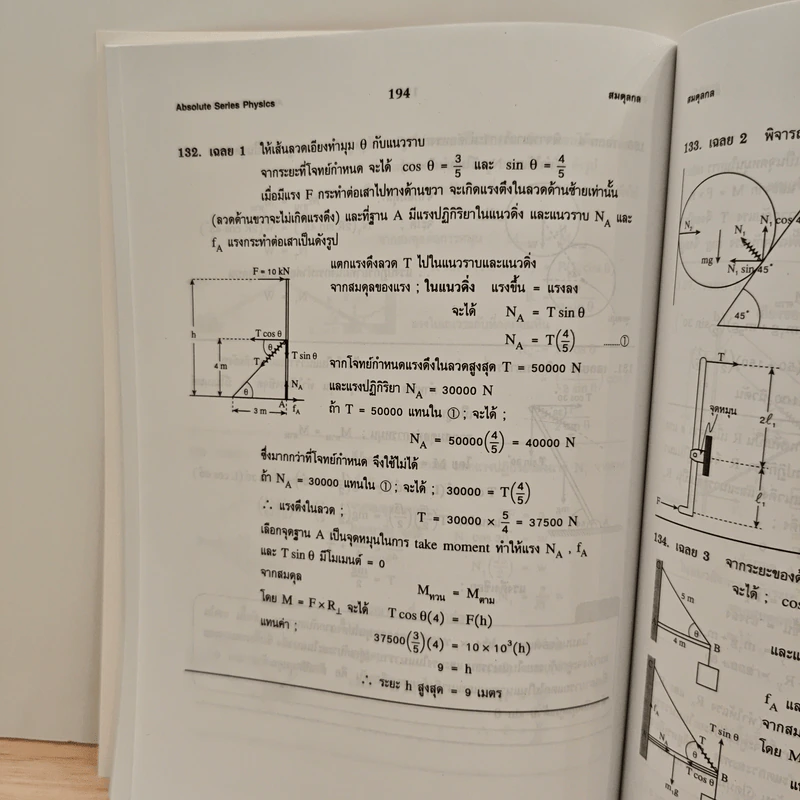 Absolute Series Physics
194
สมดุลกล
132. เฉลย 1 ให้เส้นลวดเอียงทำมุม θ กับแนวราบ
จากระยะที่โจทย์กำหนด จะได้ cos θ = 3/5 และ sin θ = 4/5
เมื่อมีแรง F กระทำต่อเสาไปทางด้านขวา จะเกิดแรงตึงในลวดด้านซ้ายเท่านั้น
(ลวดด้านขวาจะไม่เกิดแรงตึง) และที่ฐาน A มีแรงปฏิกิริยาในแนวดิ่ง และแนวราบ N_A และ
f_A แรงกระทำต่อเสาเป็นดังรูป
F = 10 kN
h
T cos θ
θ
T
T sin θ
4 m
θ
N_A
A
f_A
3 m
แตกแรงตึงลวด T ไปในแนวราบและแนวดิ่ง
จากสมดุลของแรง ; ในแนวดิ่ง แรงขึ้น = แรงลง
จะได้ N_A = T sin θ
N_A = T(4/5) ........①
จากโจทย์กำหนดแรงตึงในลวดสูงสุด T = 50000 N
และแรงปฏิกิริยา N_A = 30000 N
ถ้า T = 50000 แทนใน ① ; จะได้ ;
N_A = 50000(4/5) = 40000 N
ซึ่งมากกว่าที่โจทย์กำหนด จึงใช้ไม่ได้
ถ้า N_A = 30000 แทนใน ① ; จะได้ ; 30000 = T(4/5)
∴ แรงตึงในลวด ; T = 30000 × 5/4 = 37500 N
เลือกจุดฐาน A เป็นจุดหมุนในการ take moment ทำให้แรง N_A , f_A
และ T sin θ มีโมเมนต์ = 0
จากสมดุล M_ทวน = M_ตาม
โดย M = F × R_⊥ จะได้ T cos θ(4) = F(h)
แทนค่า ; 37500(3/5)(4) = 10 × 10³(h)
9 = h
∴ ระยะ h สูงสุด = 9 เมตร
สมดุลกล
133. เฉลย 2
N_1
mg
N_1 sin 45°
45°
T
จุดหมุน
2ℓ_1
ℓ_1
F
134. เฉลย 3
จะได้ ;
5 m
θ
4 m
B
f_A
T sin θ
T
θ
N_A
T cos θ
B
m_1g
โดย